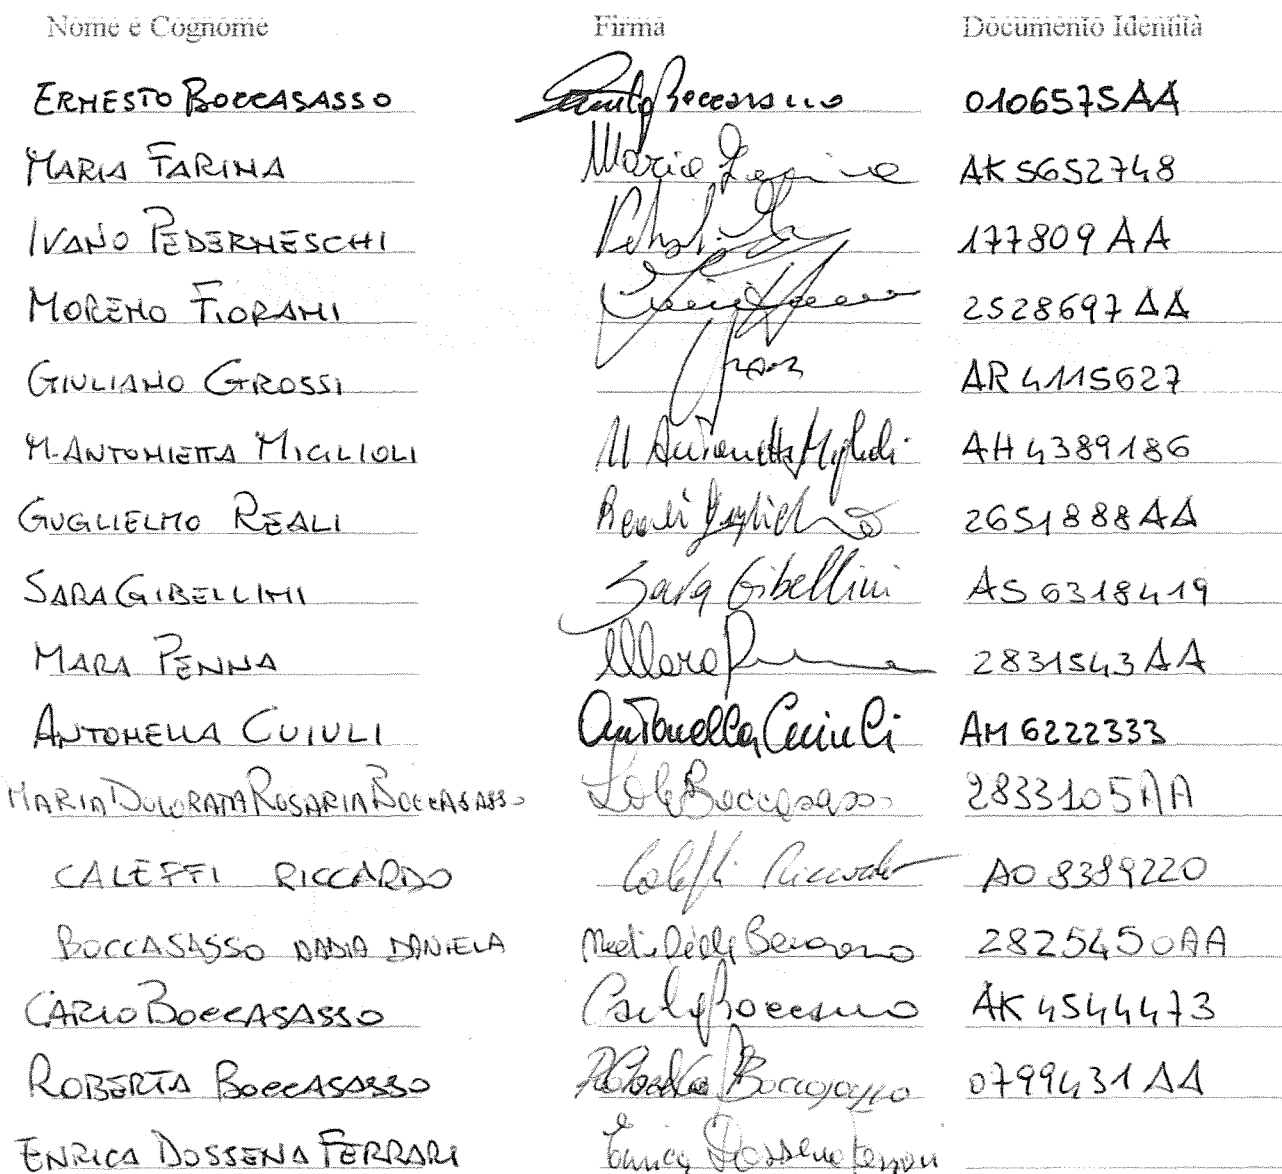 Nome e Cognome Firma Documento Identità
ERNESTO BOCCASASSO 0106575AA
MARIA FARINA Maria Farina AK 5652748
IVANO PEDERNESCHI 177809 AA
MORENO FIORANI 2528697 AA
GIULIANO GROSSI AR 4115627
M. ANTONIETTA MIGLIOLI M Antonietta Miglioli AH 4389186
GUGLIELMO REALI Reali Guglielmo 2651888AA
SARA GIBELLINI Sara Gibellini AS 6318419
MARA PENNA Mara Penna 2831543 AA
ANTONELLA CUIULI Antonella Cuiuli AM 6222333
MARIA DOLORATA ROSARIA BOCCASASSO Boccasasso 2833105AA
CALEFFI RICCARDO Caleffi Riccardo AO 8389220
BOCCASASSO NADIA DANIELA 2825450AA
CARLO BOCCASASSO Carlo Boccasasso AK 4544473
ROBERTA BOCCASASSO Roberta Boccasasso 0799431 AA
ENRICA DOSSENA FERRARI Enrica Dossena Ferrari